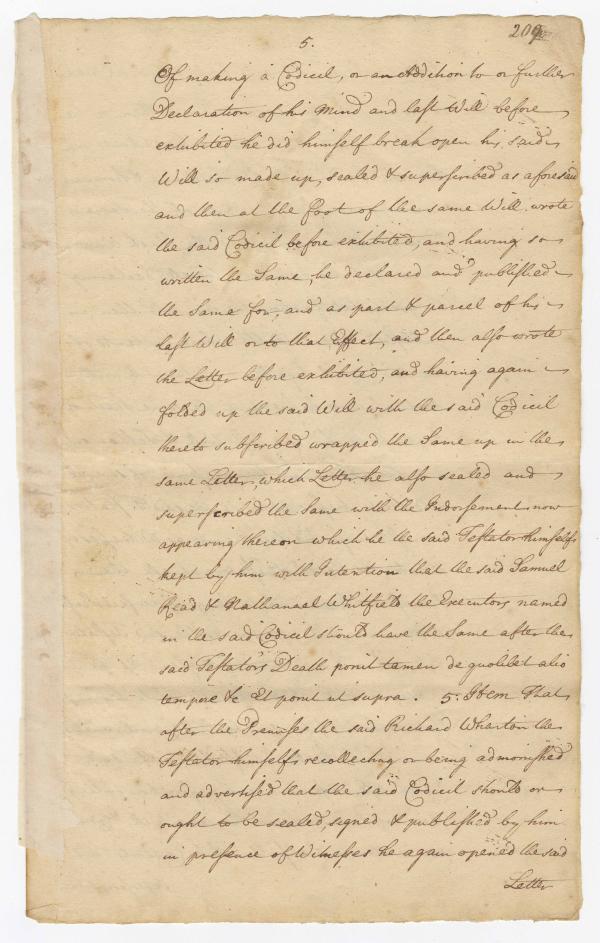 5.
209
Of making a Codicil, or an Addition to or further
Declaration of his Mind and last Will before
exhibited he did himself break open his said
Will so made up, sealed & superscribed as aforesaid
and then at the Foot of the same Will wrote
the said Codicil before exhibited, and having so
written the Same, he declared and published
the Same for, and as part & parcel of his
Last Will or to that Effect, and then also wrote
the Letter before exhibited, and having again
folded up the said Will with the said Codicil
thereto subscribed wrapped the Same up in the
same Letter, which Letter he also sealed and
superscribed the Same with the Indorsement now
appearing thereon which he the said Testator himself
kept by him with Intention that the said Samuel
Read & Nathanael Whitfield the Executors named
in the said Codicil should have the Same after the
said Testators Death ponit tamen de quolibet alio
tempore &c Et ponit ut supra. 5. Item That
after the Premises the said Richard Wharton the
Testator himself recollecting or being admonished
and advertised that the said Codicil should or
ought to be sealed, signed & published by him
in presence of Witnesses he again opened the said
Letter